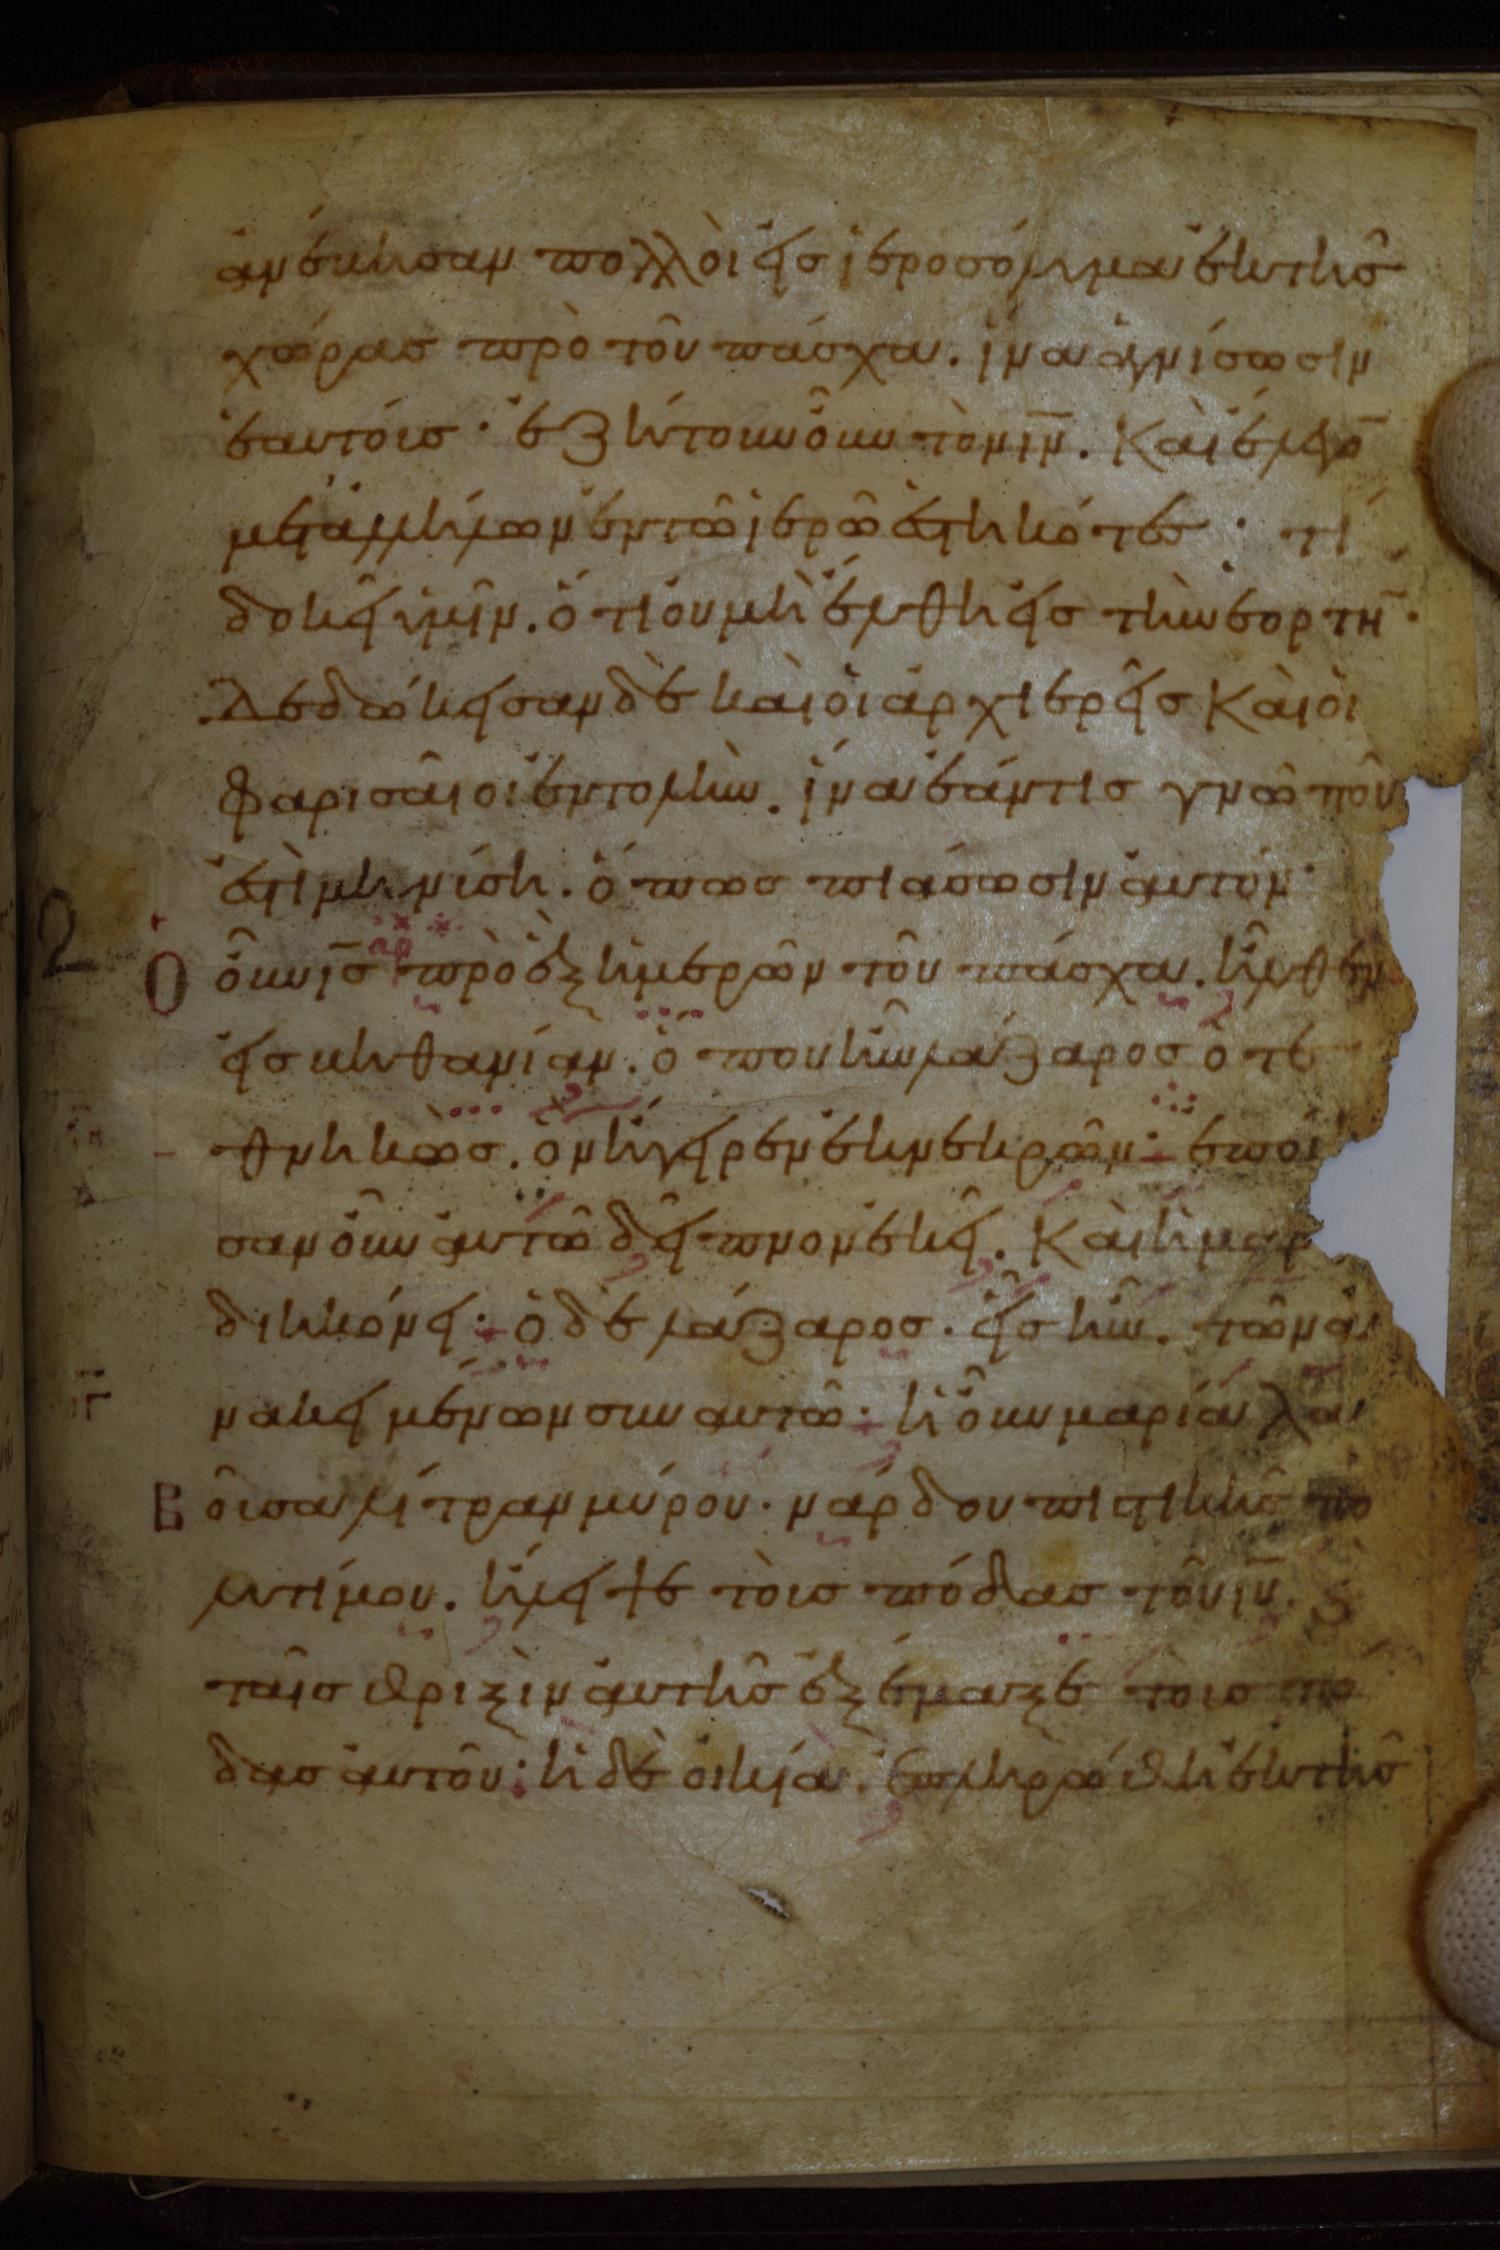 ἀνέβησαν πολλοὶ εἰς ἱεροσόλυμα ἐκ τῆς
χώρας πρὸ τοῦ πάσχα. ἵνα ἁγνίσωσιν
ἑαυτοίς· ἐζήτουν οὖν τὸν ιν̅. Καὶ ἔλεγο̅
μετ' ἀλλήλων ἐν τῶ ἱερῶ ἑστηκότες· τί
δοκεῖ ὑμῖν. ὅτι οὐ μὴ ἔλθη εἰς τὴν ἑορτη̅·
Δεδώκεισαν δὲ καὶ οἱ ἀρχιερεῖς Καὶ οἱ
φαρισαῖοι ἐντολὴν. ἵνα ἐάν τις γνῶ ποῦ
ἐστὶ μηνύση. ὅπως πιάσωσιν αὐτόν·
Ο οὖν ις̅ πρὸ ἓξ ἡμερῶν τοῦ πάσχα. ἦλθεν
εἰς βηθανίαν. ὅπου ἦν λάζαρος ὁ τε
θνηκὼς. ὃν ἤγειρεν ἐκ νεκρῶν· ἐποί
σαν οὖν αὐτῶ δεῖπνον ἐκεῖ. Καὶ ἡ μαρ
διηκόνει· ὁ δὲ λάζαρος. εἷς ἦν. τῶν ἀ
νακειμένων συν αὐτῶ· ἡ οὖν μαρία λα
Βοῦσα λίτραν μύρου. νάρδου πιστικῆς πο
λυτίμου. ἤλειψε τοὺς πόδας τοῦ ιυ̅. ϗ
ταῖς θριξὶν αὐτῆς ἐξέμαξε τοὺς πό
δας αὐτοῦ· ἡ δὲ οἰκία. ἐπληρώθη ἐκ τῆς